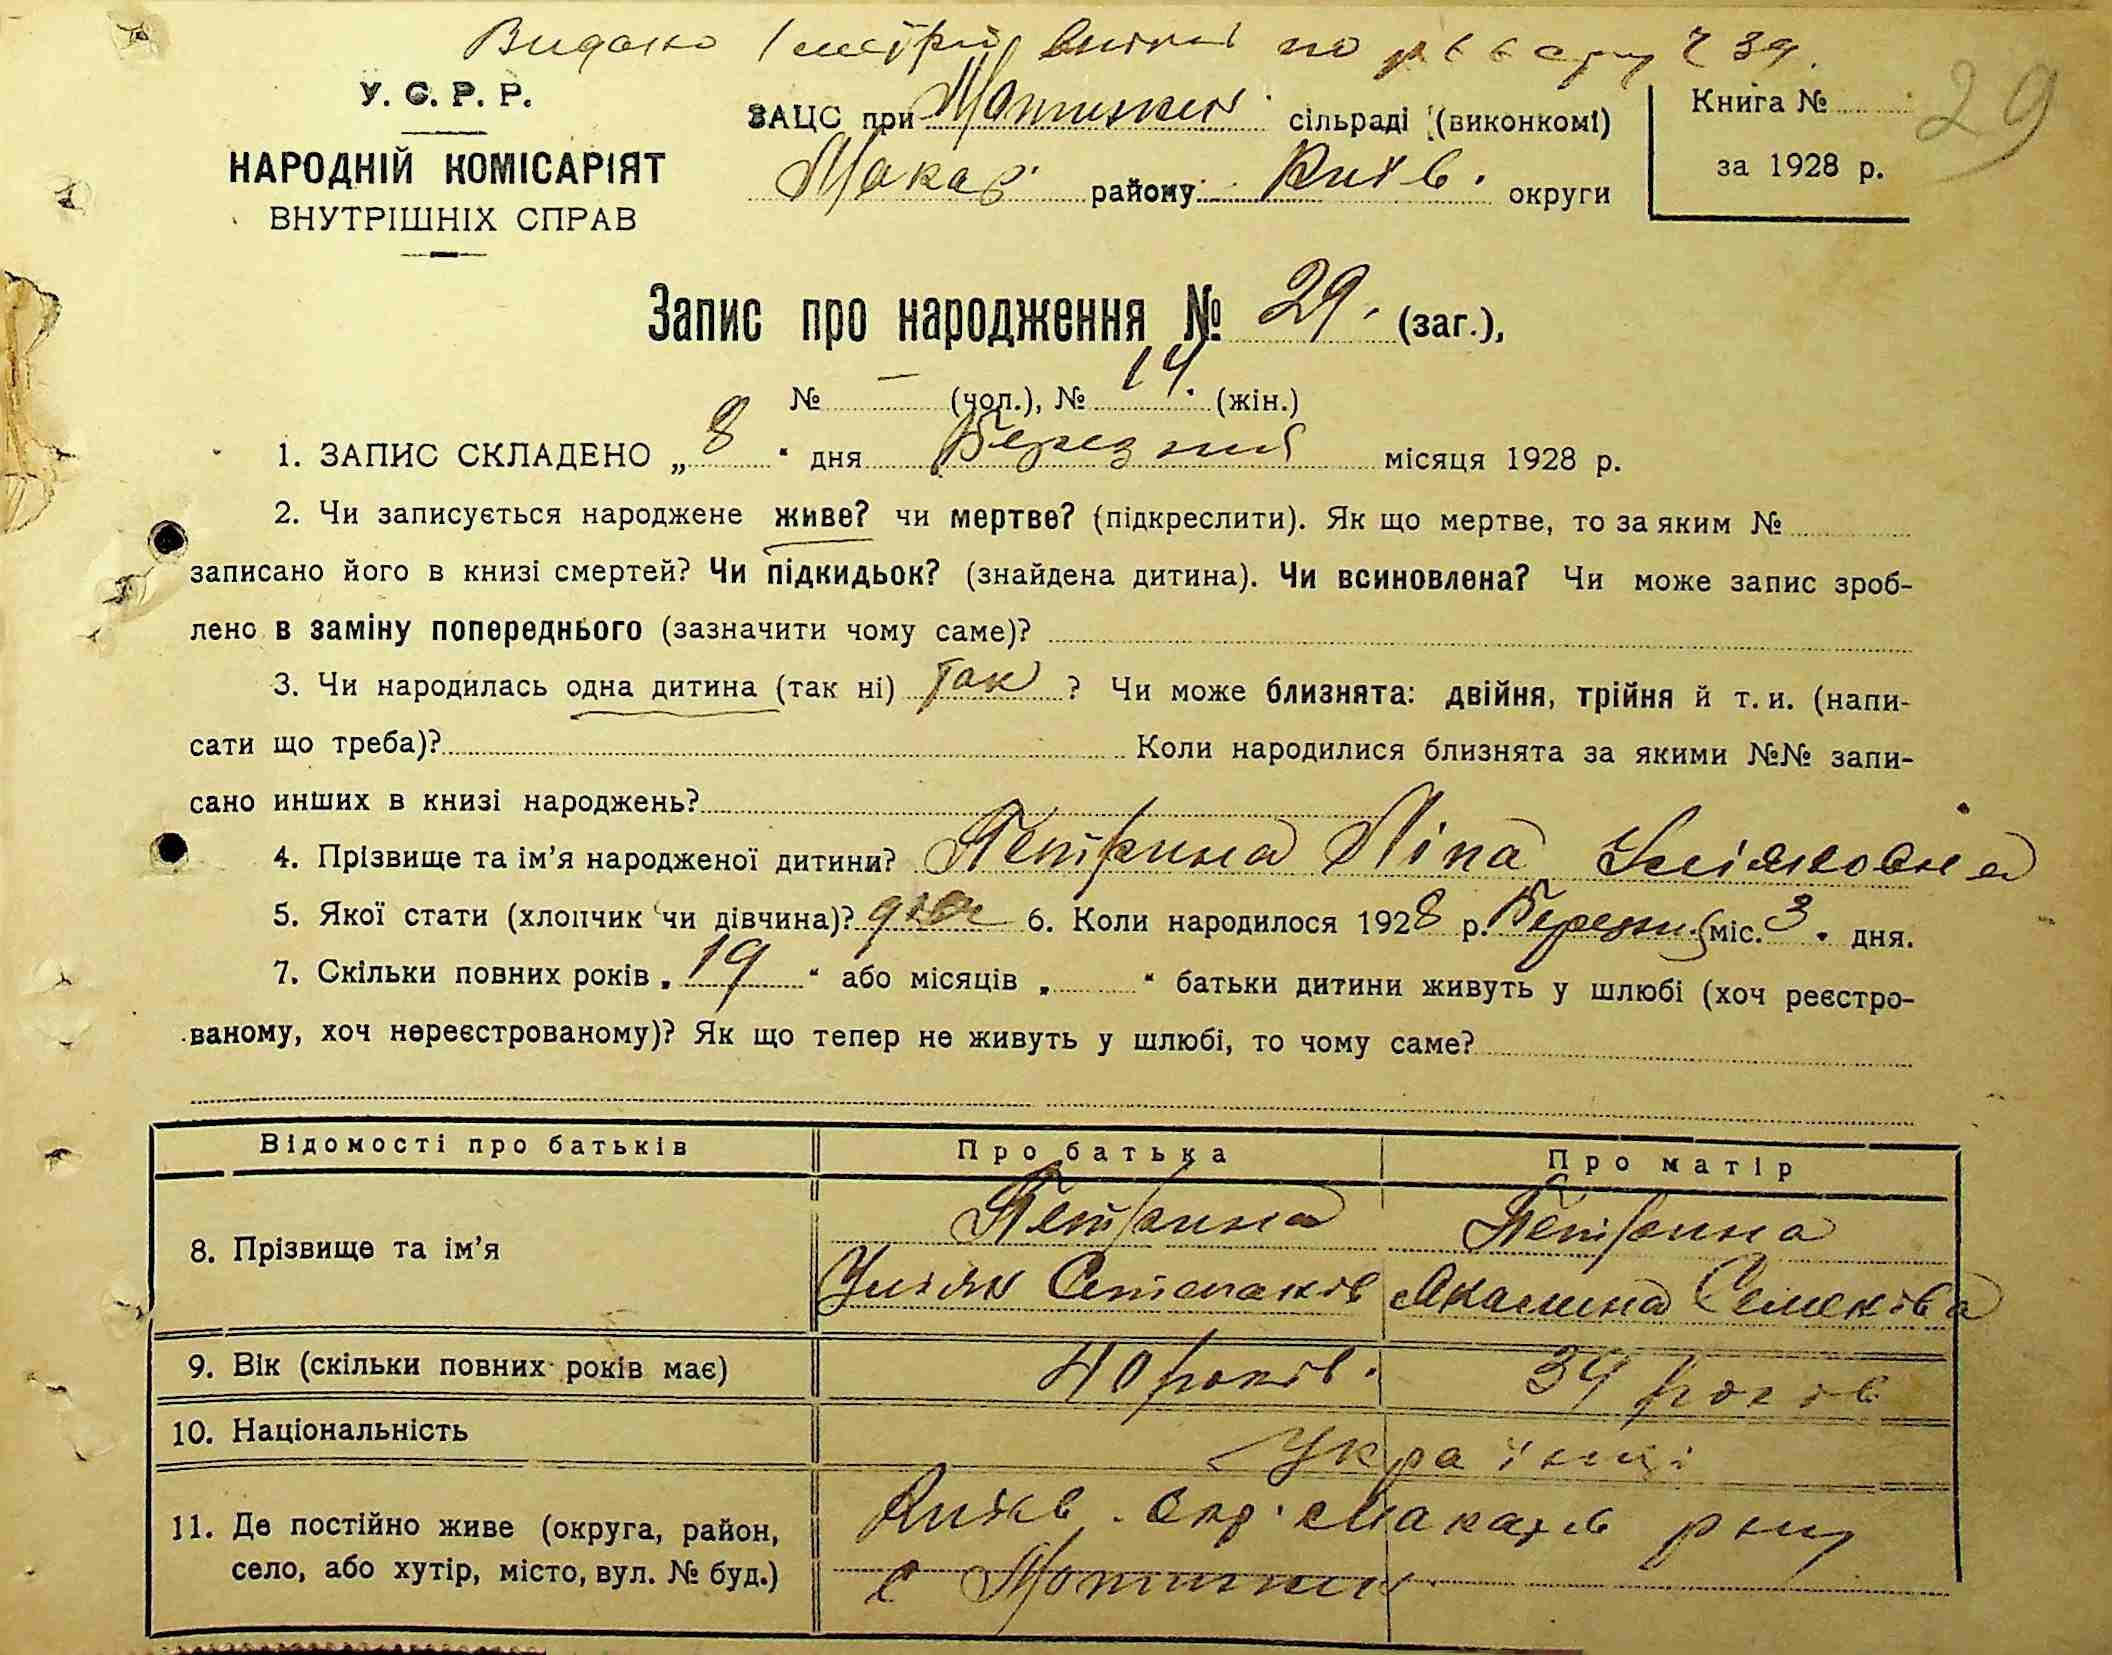 Видано метричну виписку по реєстру ч 39.
У. С. Р. Р.
НАРОДНІЙ КОМІСАРІЯТ
ВНУТРІШНІХ СПРАВ
ЗАЦС при Мотижин сільраді (виконкомі)
Макар. району Київ. округи
Книга №
за 1928 р.
29
Запис про народження № 29. (заг.),
№ — (чол.), № 14. (жін.)
1. ЗАПИС СКЛАДЕНО „8" дня Березня місяця 1928 р.
2. Чи записується народжене живе? чи мертве? (підкреслити). Як що мертве, то за яким №
записано його в книзі смертей? Чи підкидьок? (знайдена дитина). Чи всиновлена? Чи може запис зроб-
лено в заміну попереднього (зазначити чому саме)?
3. Чи народилась одна дитина (так ні) так ? Чи може близнята: двійня, трійня й т. и. (напи-
сати що треба)? Коли народилися близнята за якими №№ запи-
сано инших в книзі народжень?
4. Прізвище та ім'я народженої дитини? Петрина Ліпа Уліяновна
5. Якої стати (хлопчик чи дівчина)? дівч 6. Коли народилося 1928 р. Березня міс. 3 . дня.
7. Скільки повних років „19" або місяців „ " батьки дитини живуть у шлюбі (хоч реєстро-
ваному, хоч нереєстрованому)? Як що тепер не живуть у шлюбі, то чому саме?
Відомості про батьків Про батька Про матір
8. Прізвище та ім'я Петрина Петрина
Уліян Степанів Акилина Семенова
9. Вік (скільки повних років має) 40 років. 39 років
10. Національність Українці
11. Де постійно живе (округа, район, Київ. окр. Макарів рну
село, або хутір, місто, вул. № буд.) с Мотижин